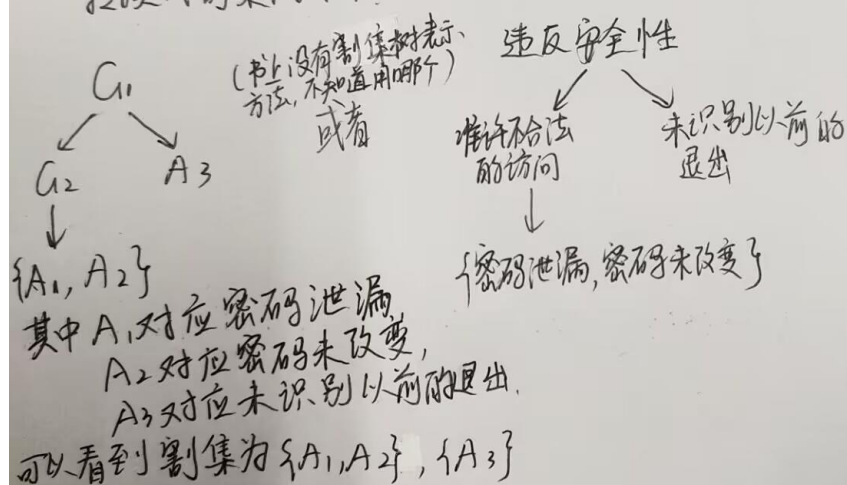 G₁
G₂
A3
{A₁, A₂}
(书上没有割集树表示
方法,不知道用哪个)
或者
违反安全性
准许不合法
的访问
未识别以前的
退出
{密码泄漏,密码未改变}
其中A₁对应密码泄漏
A₂对应密码未改变,
A3对应未识别以前的退出.
可以看到割集为{A₁,A2},{A3}